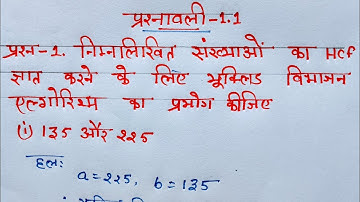 प्रश्नावली-1.1
प्रश्न-1. निम्नलिखित संख्याओं का HCF
ज्ञात करने के लिए यूक्लिड विभाजन
एल्गोरिथ्म का प्रयोग कीजिए
(i) 135 और 225
हल:
a=225, b=135